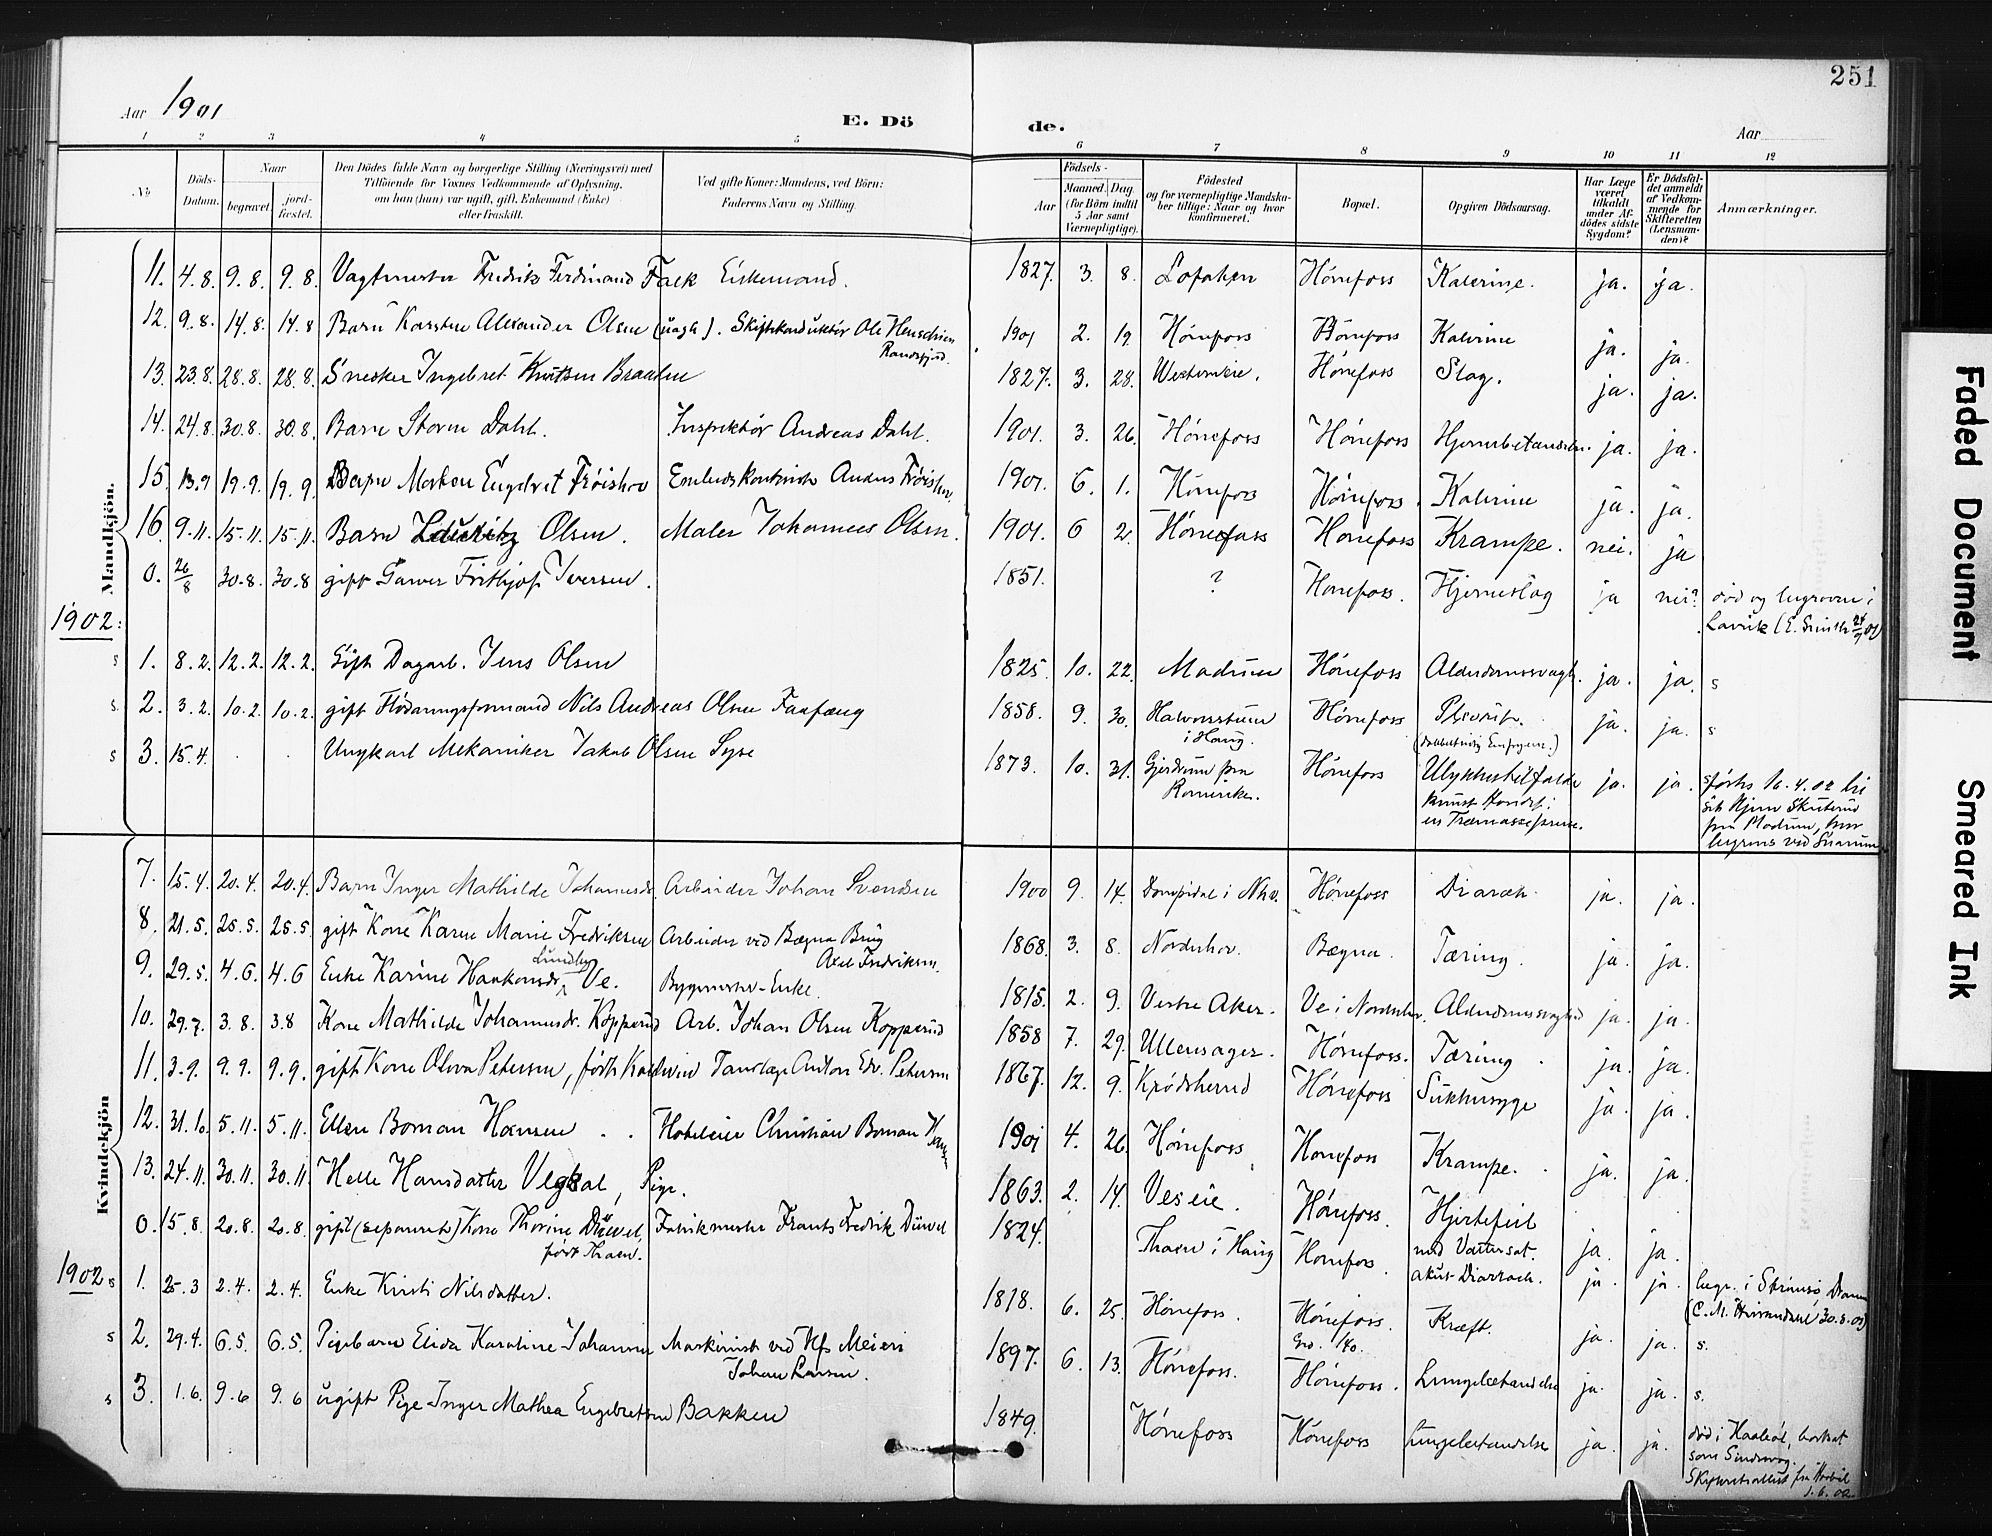 251
Aar 1901
E. Dö de.
Aar
1 2 3 4 5 6 7 8 9 10 11 12
No
Döds-Datum.
Naar
begravet.
jord-fæstet.
Den Dödes fulde Navn og borgerlige Stilling (Næringsvei) med
Tilföiende for Voxnes Vedkommende af Oplysning,
om han (hun) var ugift, gift, Enkemand (Enke)
eller fraskilt.
Ved gifte Koner: Mandens, ved Börn:
Faderens Navn og Stilling.
Födsels-
Aar
Maaned. Dag.
(for Börn indtil
5 Aar samt
Værnepligtige).
Födested
og for værnepligtige Mandska-
ber tillige: Naar og hvor
konfirmeret.
Bopæl.
Opgiven Dödsaarsag.
Har Læge
været
tilkaldt
under Af-
dödes sidste
Sygdom?
Er Dödsfal-
det anmeldt
af Vedkom-
mende for
Skifteretten
(Lensman-
den)?
Anmærkninger.
Mandkjön.
11. 4.8. 9.8. 9.8. Vagtmester Fredrik Ferdinand Falck Enkemand. 1827. 3. 8. Hönefoss ja. ja.
12. 9.8. 14.8. 14.8 Barn Karsten Alexander Olsen (uægte). Ole 1901 2. 19. Hönefoss Hönefoss ja. ja.
Randsfjord.
13. 23.8. 28.8. 28.8. Snedker Ingebret Knutsen Braaten 1827. 3. 28. Hönefoss Slag. ja. ja.
14. 24.8. 30.8. 30.8. Barn Dahl. Inspektör Andreas Dahl. 1901. 3. 26. Hönefoss Hönefoss ja. ja.
15. 13.9 19.9. 19.9. Barn Morten Engebret Fröishov 1901. 6. 1. Hönefoss Hönefoss. ja. ja.
16. 9.11. 15.11. 15.11. Barn Lauritz Olsen. Maler Johannes Olsen. 1901. 6 2. Hönefoss Hönefoss Krampe. nei. ja
0. 26/8 30.8. 30.8 gift Garver Frithjof Iversen. 1851. ? Hönefoss. Hjerneslag ja nei? död og begraven i
Larvik (E. Smith 24/9 01)
1902:
s 1. 8.2. 12.2. 12.2. Gift Dagarb. Jens Olsen 1825. 10. 22. Modum Hönefoss Alderdomssvagh. ja. ja. s
s. 2. 3.2. 10.2. 10.2. gift Flödningsformand Nils Andreas Olsen Faafæng 1858. 9. 30. Hönefoss ja. ja. s
i Haug.
s 3. 15.4. . . Ungkarl Mekaniker Jakob Olsen 1873. 10. 31. Gjerdrum paa Hönefoss Ulykkestilfælde ja. ja.
Romerike. knust Hovedet i
en Træmassepresse.
förtes 16.4.02 til
sit Hjem
fra Modum, hvor
begraves ved Snarum
Kvindekjön
7. 15.4. 20.4. 20.4. Barn Inger Mathilde Johannesdr. Arbeider Johan Svendsen 1900 9. 14. Hönefoss ja. ja.
8. 21.5. 25.5. 25.5. gift Kone Karen Marie Fredriksen Arbeider ved Bægna Brug 1868. 3. 8. Norderhov. Bægna. Tæring. ja. ja.
Axel Fredriksen.
9. 29.5. 4.6. 4.6 Enke Karine Haakonsdr. Lundby Ve. Bygmester-Enke. 1815. 2. 9. Vestre Aker. Ve i Norderhov. Alderdomssvaghed ja. ja.
10. 29.7. 3.8. 3.8 Kone Mathilde Johannesdr. Kopperud Arb. Johan Olsen Kopperud 1858 7. 29. Ullensager. Hönefoss. Tæring. ja. ja.
11. 3.9. 9.9. 9.9. gift Kone Olava Petersen, födt Tandlæge Anton Edv. Petersen 1867. 12. 9. Krödsherred Hönefoss Sukkersyge ja. ja.
12. 31.10. 5.11. 5.11. Ellen Boman Hansen . . Hoteleier Christian Boman Hansen 1901 4. 26. Hönefoss Hönefoss Krampe. ja. ja.
13. 24.11. 30.11. 30.11. Helle Hansdatter Vegsal, Pige. 1863. 2. 14. Veseie. Hönefoss. Hjertefeil
med Vattersot. ja. ja.
0. 15.8. 20.8. 20.8. gift (separeret) Kone Thorine Düvel, Fabrikmester Frants Fredrik Düvel 1824. i Haug Hönefoss.
akut Diarroeh. ja. ja. begr. i Strömsö, Dramm.
30.8.01)
1902
s 1. 25.3 2.4. 2.4. Enke Kirsti Nilsdatter. 1818. 6. 25. Hönefoss. Hönefoss. Kræft. ja. ja. s.
s 2. 29.4. 6.5. 6.5. Pigebarn Elida Karoline Johansen Maskinist ved Hfs Meieri 1897. 6. 13. Hönefoss. Hönefoss. Lungebetændelse ja. ja. s.
Johan Larsen.
s 3. 1.6. 9.6 9.6 ugift Pige Inger Mathea Engebretsen Bakken 1849. Hönefoss Hönefoss Lungebetændelse ja. ja. död i
som Sindssyg.
1.6.02.
Faded Document
Smeared Ink